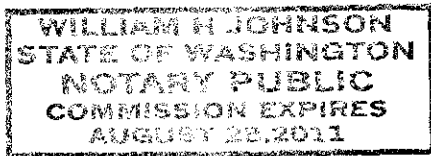 WILLIAM H JOHNSON
STATE OF WASHINGTON
NOTARY PUBLIC
COMMISSION EXPIRES
AUGUST 28,2011